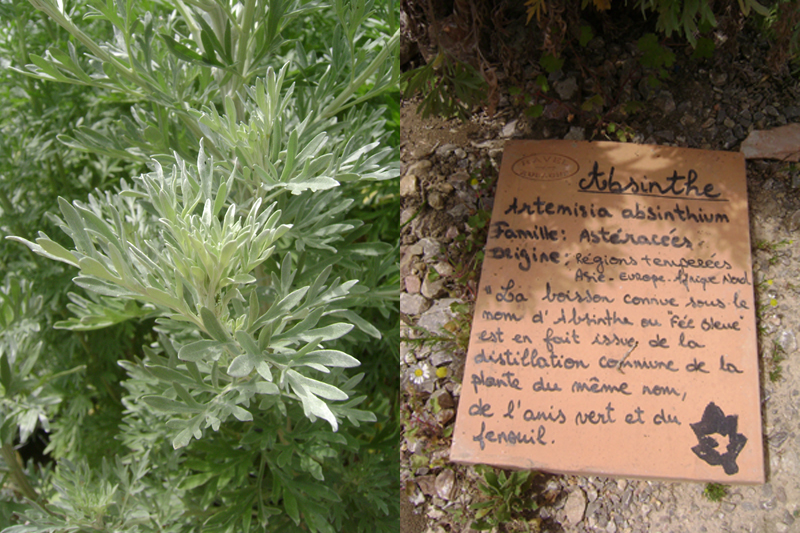 HAVRE
Absinthe
Artemisia absinthium
Famille: Astéracées.
Origine: Régions tempérées
Asie - Europe - Afrique Nord
"La boisson connue sous le
nom d'Absinthe ou "Fée bleue"
est en fait issue de la
distillation commune de la
plante du même nom,
de l'anis vert et du
fenouil.